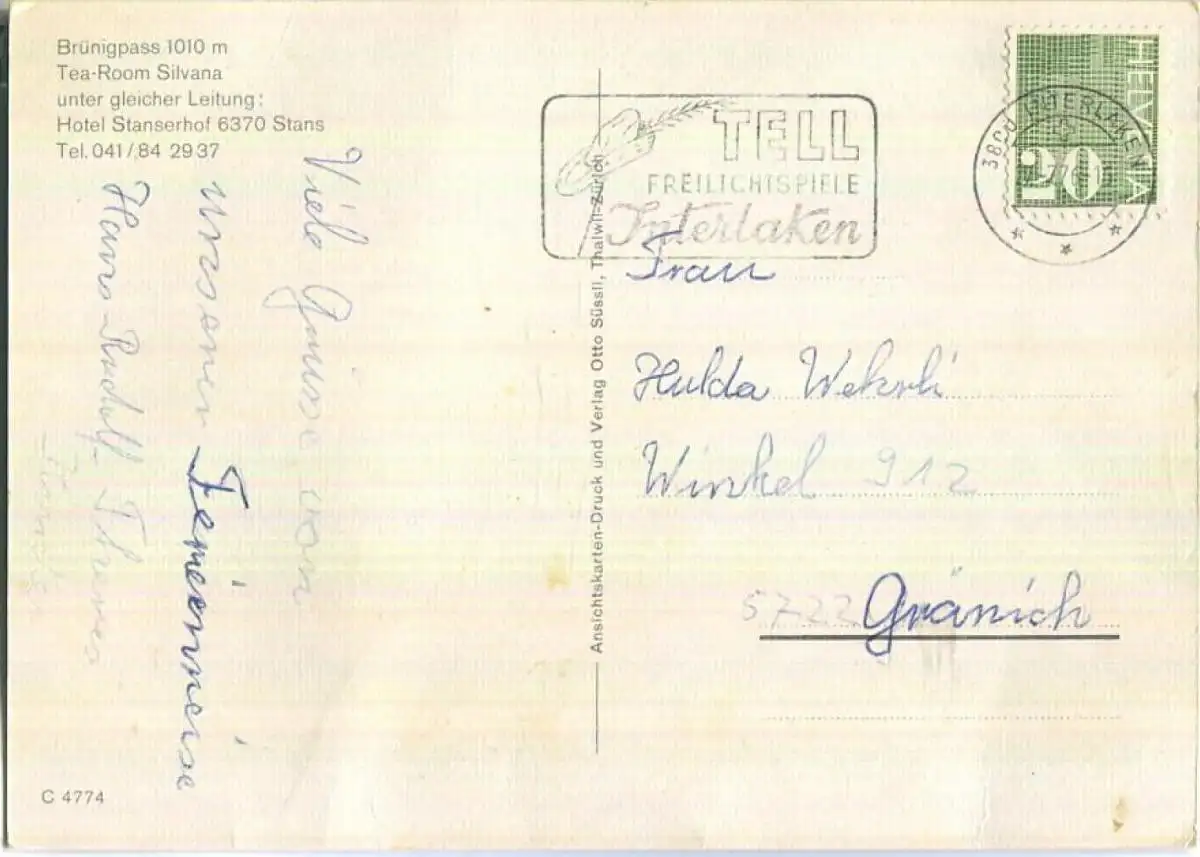 Brünigpass 1010 m
Tea-Room Silvana
unter gleicher Leitung:
Hotel Stanserhof 6370 Stans
Tel. 041/84 29 37
Viele Grüsse von
unserer Ferienreise
Hans-Rudolf
C 4774
Ansichtskarten-Druck und Verlag Otto Süssli, Thalwil-Zürich
TELL
FREILICHTSPIELE
Interlaken
HELVETIA
20
3800 INTERLAKEN
Frau
Hulda Wehrli
Winkel 912
5722 Gränich